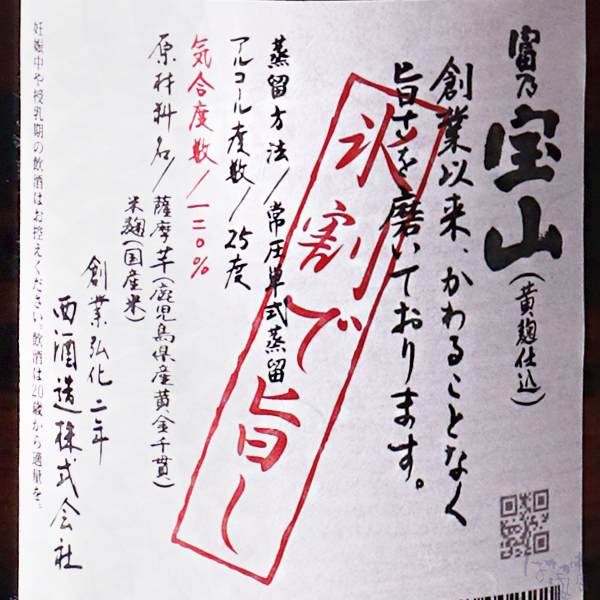 富乃宝山(黄麹仕込)
創業以来、かわることなく
旨さを磨いております。
氷割で旨し
蒸留方法/常圧単式蒸留
アルコール度数/25度
気合度数/一二〇%
原材料名/薩摩芋(鹿児島県産黄金千貫)
米麹(国産米)
創業弘化二年
西酒造株式会社
妊娠中や授乳期の飲酒はお控えください。飲酒は20歳から適量を。